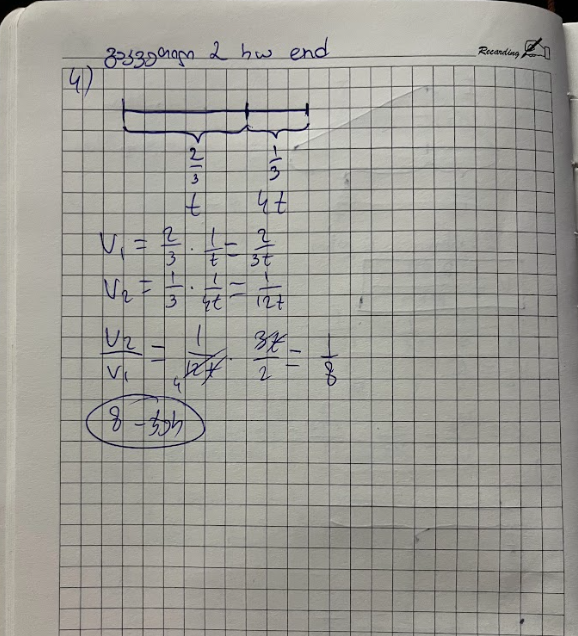 2 hw end
Recarding
4)
2/3 1/3
t 4t
V₁ = 2/3 · 1/t = 2/3t
V₂ = 1/3 · 1/4t = 1/12t
V₂/V₁ = 1/12t · 3t/2 = 1/8
4
8 -